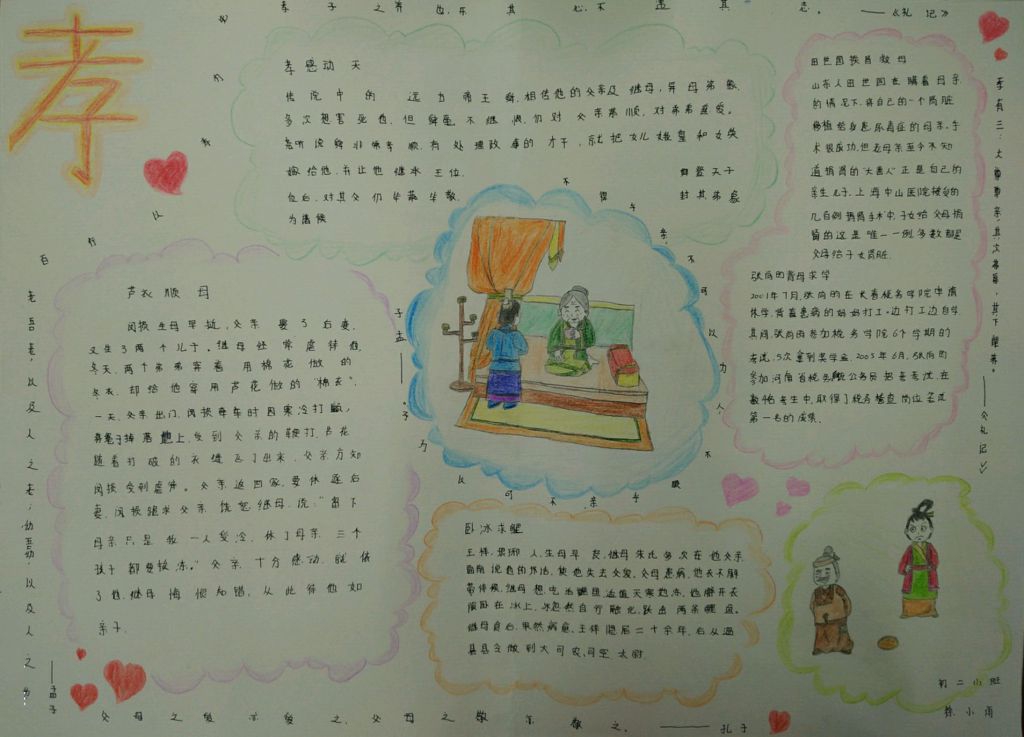 孝
孝子之养也,乐其心,不违其志。——《礼记》
孝感动天
传说中的 远古帝王舜,相传他的父亲及继母,异母弟象,
多次想害死他,但舜毫不继恨,仍对父亲恭顺,对弟弟慈爱。
尧听说舜非常孝顺,有处理政事的才干,就把女儿娥皇和女英
嫁给他,并让他继承王位。 舜登天子
位后,对其父仍毕恭毕敬, 封其弟象
为诸侯
田世国捐肾救母
山东人田世国在瞒着母亲
的情况下,将自己的一个肾脏
移植给身患尿毒症的母亲。手
术很成功,但老母亲至今不知
道捐肾的"大善人"正是自己的
亲生儿子,上海中山医院做的
几百例捐肾手术中,子女给父母捐
肾的这是唯一一例,多数都是
父母给子女肾脏。
张尚昀背母求学
2001年7月,张尚昀在长春税务学院申请
休学,背着患病的妈妈打工,边打工边自学
其间,张尚昀参加税务学院6个学期的
考试,5次拿到奖学金。2005年6月,张尚昀
参加河南省税务系统公务员招考考试,在
数他考生中,取得了税务稽查岗位考试
第一名的成绩。
孝有三:大尊尊亲,其次弗辱,其下能养。——《礼记》
芦衣顺母
闵损生母早逝,父亲娶了后妻,
又生了两个儿子。继母经常虐待他,
冬天,两个弟弟穿着用棉花做的
冬衣,却给他穿用芦花做的"棉衣"。
一天,父亲出门,闵损牵车时因寒冷打颤,
将绳子掉落地上,受到父亲的鞭打,芦花
随着打破的衣缝飞了出来,父亲方知
闵损受到虐待。父亲返回家,要休逐后
妻。闵损跪求父亲饶恕继母,说:"留下
母亲只是我一人受冷,休了母亲三个
孩子都要挨冻。"父亲十分感动,就依
了他。继母悔恨知错,从此待他如
亲子。
不得乎亲,不可以为人;不顺乎亲,不可以为子。——孟子
卧冰求鲤
王祥,琅琊人,生母早丧,继母朱氏多次在他父亲
面前说他的坏话,使他失去父爱。父母患病,他衣不解
带侍候,继母想吃活鲤鱼,适值天寒地冻,他解开衣
服卧在冰上,冰忽然自行融化,跃出两条鲤鱼。
继母食后,果然病愈。王祥隐居二十余年,后从温
县县令做到大司农,司空,太尉。
老吾老,以及人之老;幼吾幼,以及人之幼。——孟子
父母之所爱亦爱之,父母之所敬亦敬之。——孔子
百行以孝为
初二小班
徐小雨